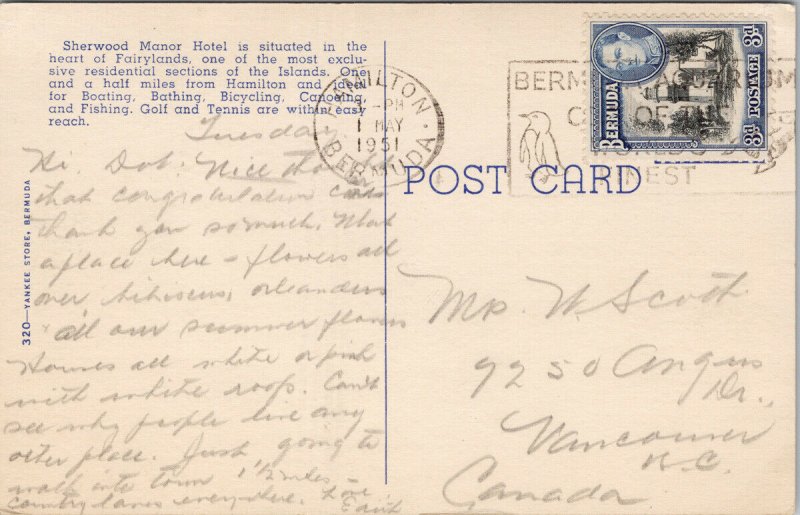 Sherwood Manor Hotel is situated in the
heart of Fairylands, one of the most exclu-
sive residential sections of the Islands. One
and a half miles from Hamilton and ideal
for Boating, Bathing, Bicycling, Canoeing,
and Fishing. Golf and Tennis are within easy
reach.
320—YANKEE STORE, BERMUDA
Tuesday
Hi. Dot. Nice
that congratulation card
thank you so much. What
a place here – flowers all
over hibiscus, oleanders
all our summer flowers
Houses all white or pink
with white roofs. Can't
see why people live any
other place. Just going to
walk into town 1 1/2 miles –
Country lanes everywhere. Love
Edith
HAMILTON
PM
1 MAY
1951
BERMUDA
BERMUDA AQUARIUM
ONE OF THE
WORLD'S
FINEST
BERMUDA
POSTAGE
3d
3d
POST CARD
Mr. W. Scott
9250 Angus
Dr.,
Vancouver
B.C.
Canada